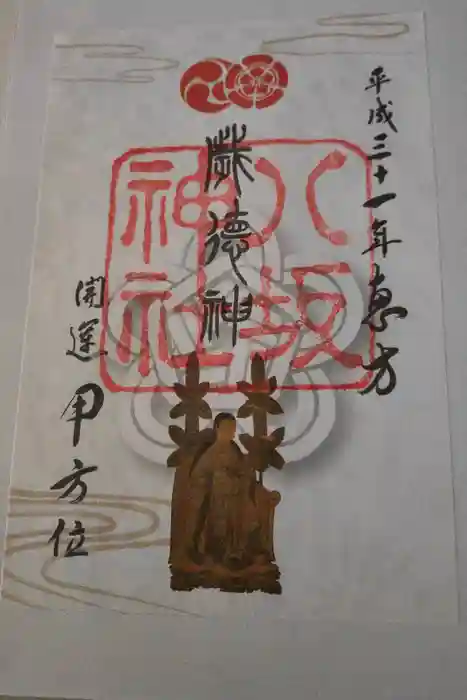 平成三十一年恵方
歳徳神
八坂
神社
開運
甲方位